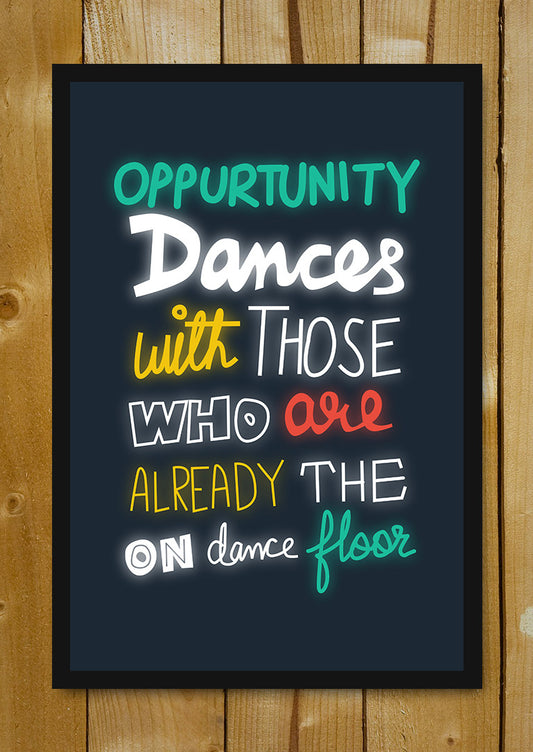 OPPURTUNITY
Dances
with THOSE
WHO are
ALREADY THE
ON dance floor